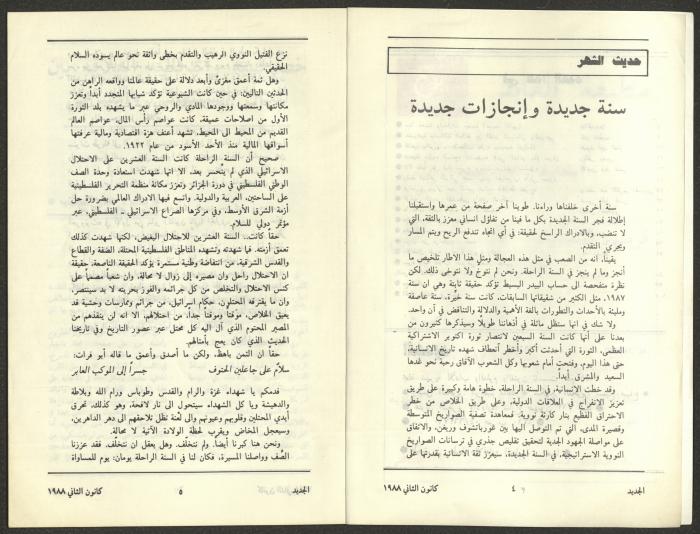 حديث الشهر
سنة جديدة وإنجازات جديدة
سنة أخرى خلفناها وراءنا. طوينا آخر صفحة من عمرها واستقبلنا
إطلالة فجر السنة الجديدة بكل ما فينا من تفاؤل انساني معزز بالثقة، التي
لا تنضب، وبالادراك الراسخ لحقيقة: في أي اتجاه تندفع الريح ويتم المسار
ويجري التقدم.
يقيناً، انه من الصعب في مثل هذه العجالة ومثل هذا الاطار تلخيص ما
أنجز وما لم ينجز في السنة الراحلة. ونحن لم ننوخ ولا نتوخى ذلك. لكن
نظرة متفحصة الى حساب البيدر البسيط تؤكد حقيقة ثابتة وهي ان سنة
١٩٨٧، مثل الكثير من شقيقاتها السابقات، كانت سنة خيّرة، سنة عاصفة
ومليئة بالأحداث والتطورات بالغة الأهمية والدلالة والتناقض في آن واحد.
ولا شك في انها ستظل ماثلة في أذهاننا طويلا وسيذكرها كثيرون من
بعدنا على أنها كانت السنة السبعين لانتصار ثورة اكتوبر الاشتراكية
العظمى، الثورة التي أحدثت أكبر وأخطر انعطاف شهده تاريخ الانسانية،
حتى هذا اليوم، وفتحت أمام شعوبها وكل الشعوب الآفاق رحبة نحو غدها
السعيد والمشرق أبداً.
وقد خطت الانسانية، في السنة الراحلة، خطوة هامة وكبيرة على طريق
تعزيز الانفراج في العلاقات الدولية، وعلى طريق الخلاص من خطر
الاحتراق الفظيع بنار كارثة نووية. فمعاهدة تصفية الصواريخ المتوسطة
وقصيرة المدى، التي تم التوصل اليها بين غورباتشوف وريغن، والاتفاق
على مواصلة الجهود الجدية لتحقيق تقليص جذري في ترسانات الصواريخ
النووية الاستراتيجية، في السنة الجديدة، سيعزّز ثقة الانسانية بقدرتها على
الجديد
٤
كانون الثاني ١٩٨٨
نزع الفتيل النووي الرهيب والتقدم بخطى واثقة نحو عالم يسوده السلام
الحقيقي.
وهل ثمة أعمق مغزىً وأبعد دلالة على حقيقة عالمنا وواقعه الراهن من
الحدثين التاليين: في حين كانت الشيوعية تؤكد شبابها المتجدد أبدا وتعزز
مكانتها وسمعتها ووجودها المادي والروحي عبر ما يشهده بلد الثورة
الأول من اصلاحات عميقة، كانت عواصم رأس المال، عواصم العالم
القديم من المحيط الى المحيط، تشهد أعنف هزة اقتصادية ومالية عرفتها
أسواقها المالية منذ الأحد الأسود من عام ١٩٢٢.
صحيح أن السنة الراحلة كانت السنة العشرين على الاحتلال
الاسرائيلي الذي لم ينحسر بعد، الا انها شهدت استعادة وحدة الصف
الوطني الفلسطيني في دورة الجزائر وتعزز مكانة منظمة التحرير الفلسطينية
على الساحتين، العربية والدولية، واتسع فيها الادراك العالمي بضرورة حل
أزمة الشرق الأوسط، وفي مركزها الصراع الاسرائيلي ـ الفلسطيني، عبر
مؤتمر دولي للسلام.
حقاً كانت... السنة العشرين للاحتلال البغيض، لكنها شهدت كذلك
تعمق أزمته. فيا شهدته وتشهده المناطق الفلسطينية المحتلة، الضفة والقطاع
والقدس الشرقية، من انتفاضة وطنية مستمرة يؤكد الحقيقة الناصعة، حقيقة
ان الاحتلال راحل وان مصيره إلى زوال لا محالة، وان شعبا مصمماً على
كنس الاحتلال والتخلص من كل جرائمه والفوز بحريته لا بد سينتصر،
وان ما يقترفه المحتلون، حكام اسرائيل، من جرائم وممارسات وحشية قد
يعيق الخلاص، مؤقتاً ومؤقتاً جداً، من احتلالهم، الا انه لن ينقذهم من
المصير المحتوم الذي آل اليه كل محتل عبر عصور التاريخ وفي تاريخنا
الحديث الذي كان يعج بأمثالهم.
حقا ان الثمن باهظ، ولكن ما أصدق وأعمق ما قاله أبو فرات:
سلامٌ على جاعلين الحتوف جسراً إلى الموكب العابر
فدمكم يا شهداء غزة والرام والقدس وطوباس ورام الله وبلاطة
والدهيشة ويا كل الشهداء سيتحول الى نار لافحة، وهو كذلك، تحرق
أيدي المحتلين وقلوبهم وعيونهم والى لعنة تظل تلاحقهم الى دهر الداهرين،
وسيعجل المخاض ويقرب لحظة الولادة الآتية لا محالة.
ونحن هنا كبرنا أيضا. ولم نتخلّف. وهل يعقل ان نتخلّف. فقد عززنا
الصف وواصلنا المسيرة، فكان لنا في السنة الراحلة يومان: يوم للمساواة
الجديد
٥
كانون الثاني ١٩٨٨